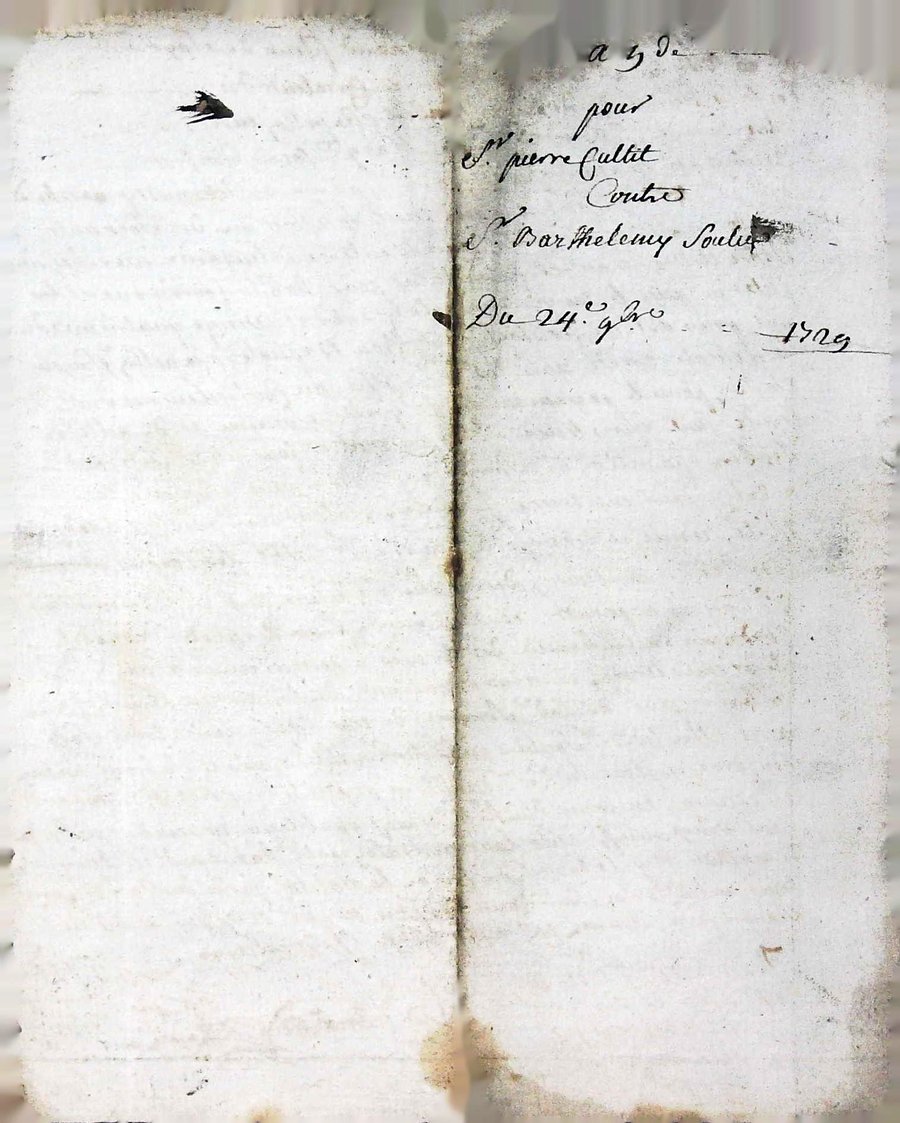 pour
Sr. pierre Cultit
Contre
Sr. Barthelemy
Du 24.e 9bre
1729